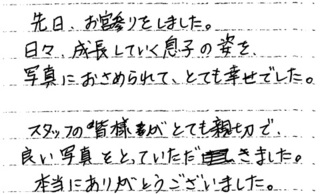 先日、お宮参りをしました。
日々、成長していく息子の姿を、
写真におさめられて、とても幸せでした。
スタッフの皆様がとても親切で、
良い写真をとっていただきました。
本当にありがとうございました。